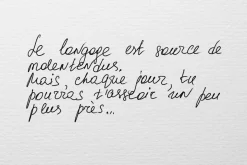 Le langage est source de
malentendus.
Mais, chaque jour, tu
pourras t'asseoir un peu
plus près...